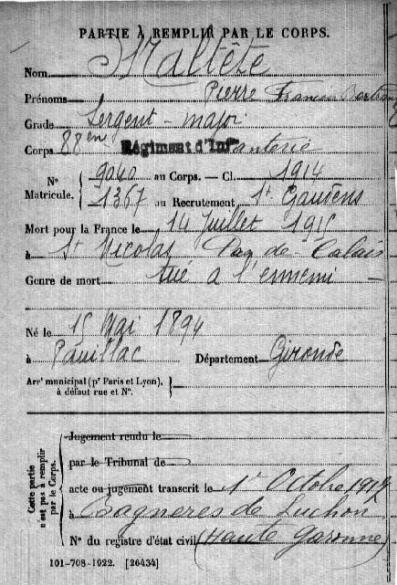 PARTIE À REMPLIR PAR LE CORPS.
Nom Maltête
Prénoms Pierre Francois Bertrand
Grade Sergent-major
Corps 88ème Régiment d'Infanterie
N° 9040 au Corps. — Cl. 1914
Matricule. 1367 au Recrutement St Gaudens
Mort pour la France le 14 Juillet 1915
à St Nicolas Pas-de-Calais
Genre de mort tué à l'ennemi
Né le 15 Mai 1894
à Pauillac Département Gironde
Arrt municipal (pr Paris et Lyon),
à défaut rue et N°.
Cette partie
n'est pas à remplir
par le Corps.
Jugement rendu le
par le Tribunal de
acte ou jugement transcrit le 1er Octobre 1917
à Bagnères de Luchon
N° du registre d'état civil (Haute Garonne)
101-708-1922. [26434]